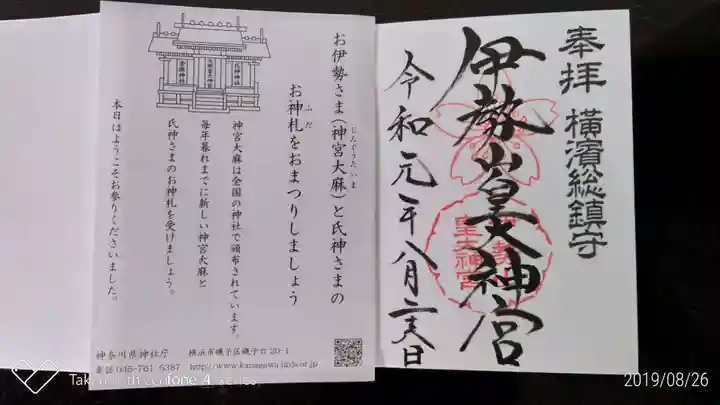 奉拝 横濱総鎮守
伊勢山皇大神宮
令和元年八月二六日
お伊勢さま(神宮大麻)と氏神さまの
じんぐうたいま
お神札をおまつりしましょう
ふだ
神宮大麻は全国の神社で頒布されています。
毎年暮れまでに新しい神宮大麻と
氏神さまのお神札を受けましょう。
本日はようこそお参りくださいました。
神奈川県神社庁 横浜市磯子区磯子台20-1
2019/08/26